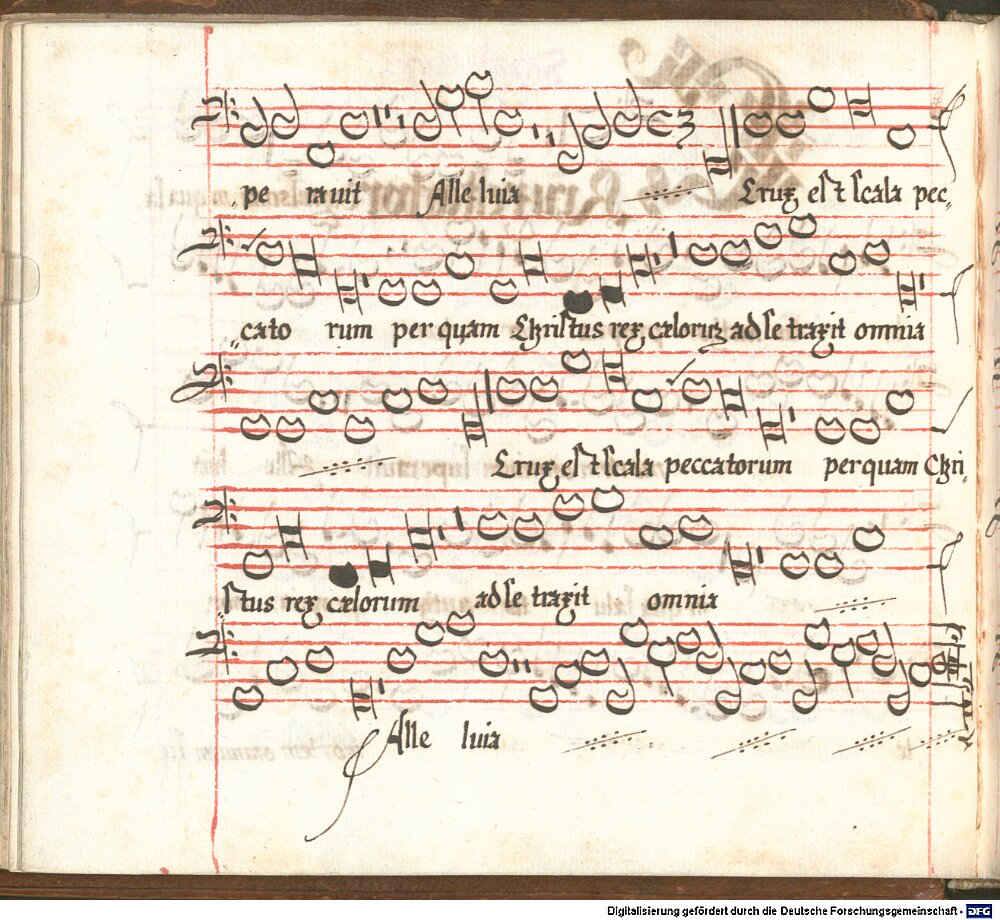 pe ravit Alleluia Crux est scala pec-
cato rum per quam Christus rex cælorum ad se traxit omnia
Crux est scala peccatorum per quam Chri-
stus rex cælorum ad se traxit omnia
Alle luia
Digitalisierung gefördert durch die Deutsche Forschungsgemeinschaft - DFG